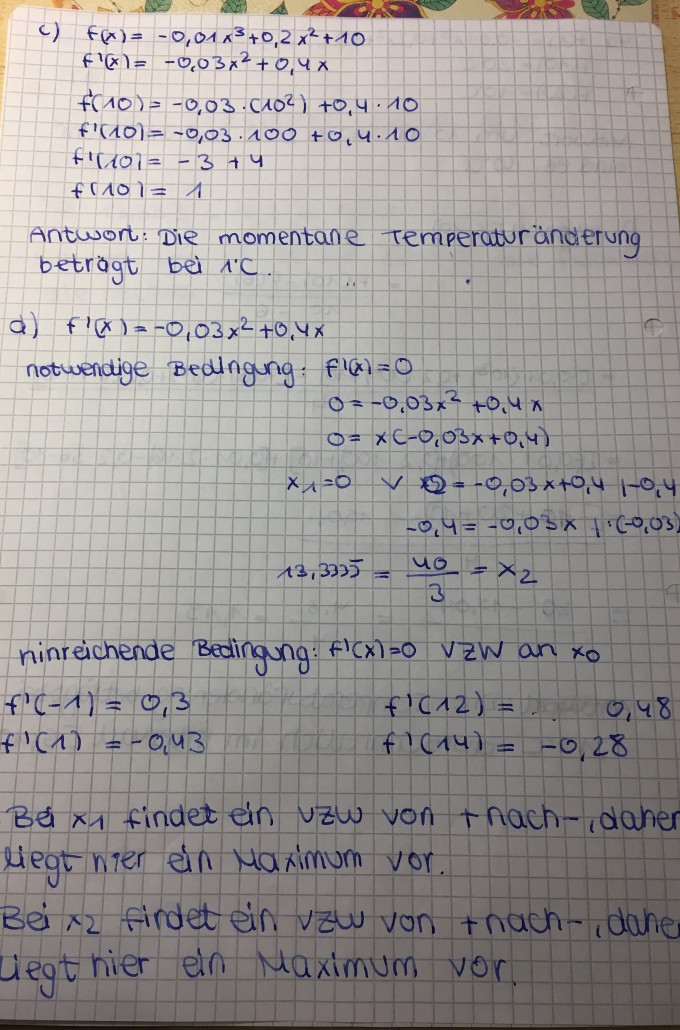 c) f(x) = -0,01x³+0,2x²+10
f'(x) = -0,03x²+0,4x
f'(10) = -0,03·(10²) +0,4·10
f'(10) = -0,03·100 +0,4·10
f'(10) = -3 +4
f(10) = 1
Antwort: Die momentane Temperaturänderung
beträgt bei 1°C.
d) f'(x) = -0,03x²+0,4x
notwendige Bedingung: f'(x)=0
0=-0,03x² +0,4x
0= x(-0,03x+0,4)
x₁=0 ∨ 0=-0,03x+0,4 |-0,4
-0,4=-0,03x |:(-0,03)
= 40/3 = x₂
hinreichende Bedingung: f'(x)=0 VZW an x0
f'(-1) = 0,3 f'(12) = 0,48
f'(1) = -0,43 f'(14) = -0,28
Bei x1 findet ein VZW von + nach -, daher
liegt hier ein Maximum vor.
Bei x2 findet ein VZW von + nach -, daher
liegt hier ein Maximum vor.